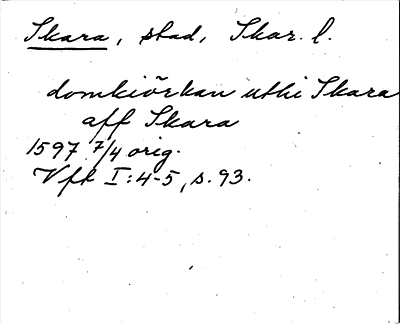 Skara, stad, Skar. l.
domkiörkan uthi Skara
aff Skara
1597 7/4 orig.
Vfk I:4-5, s. 93.